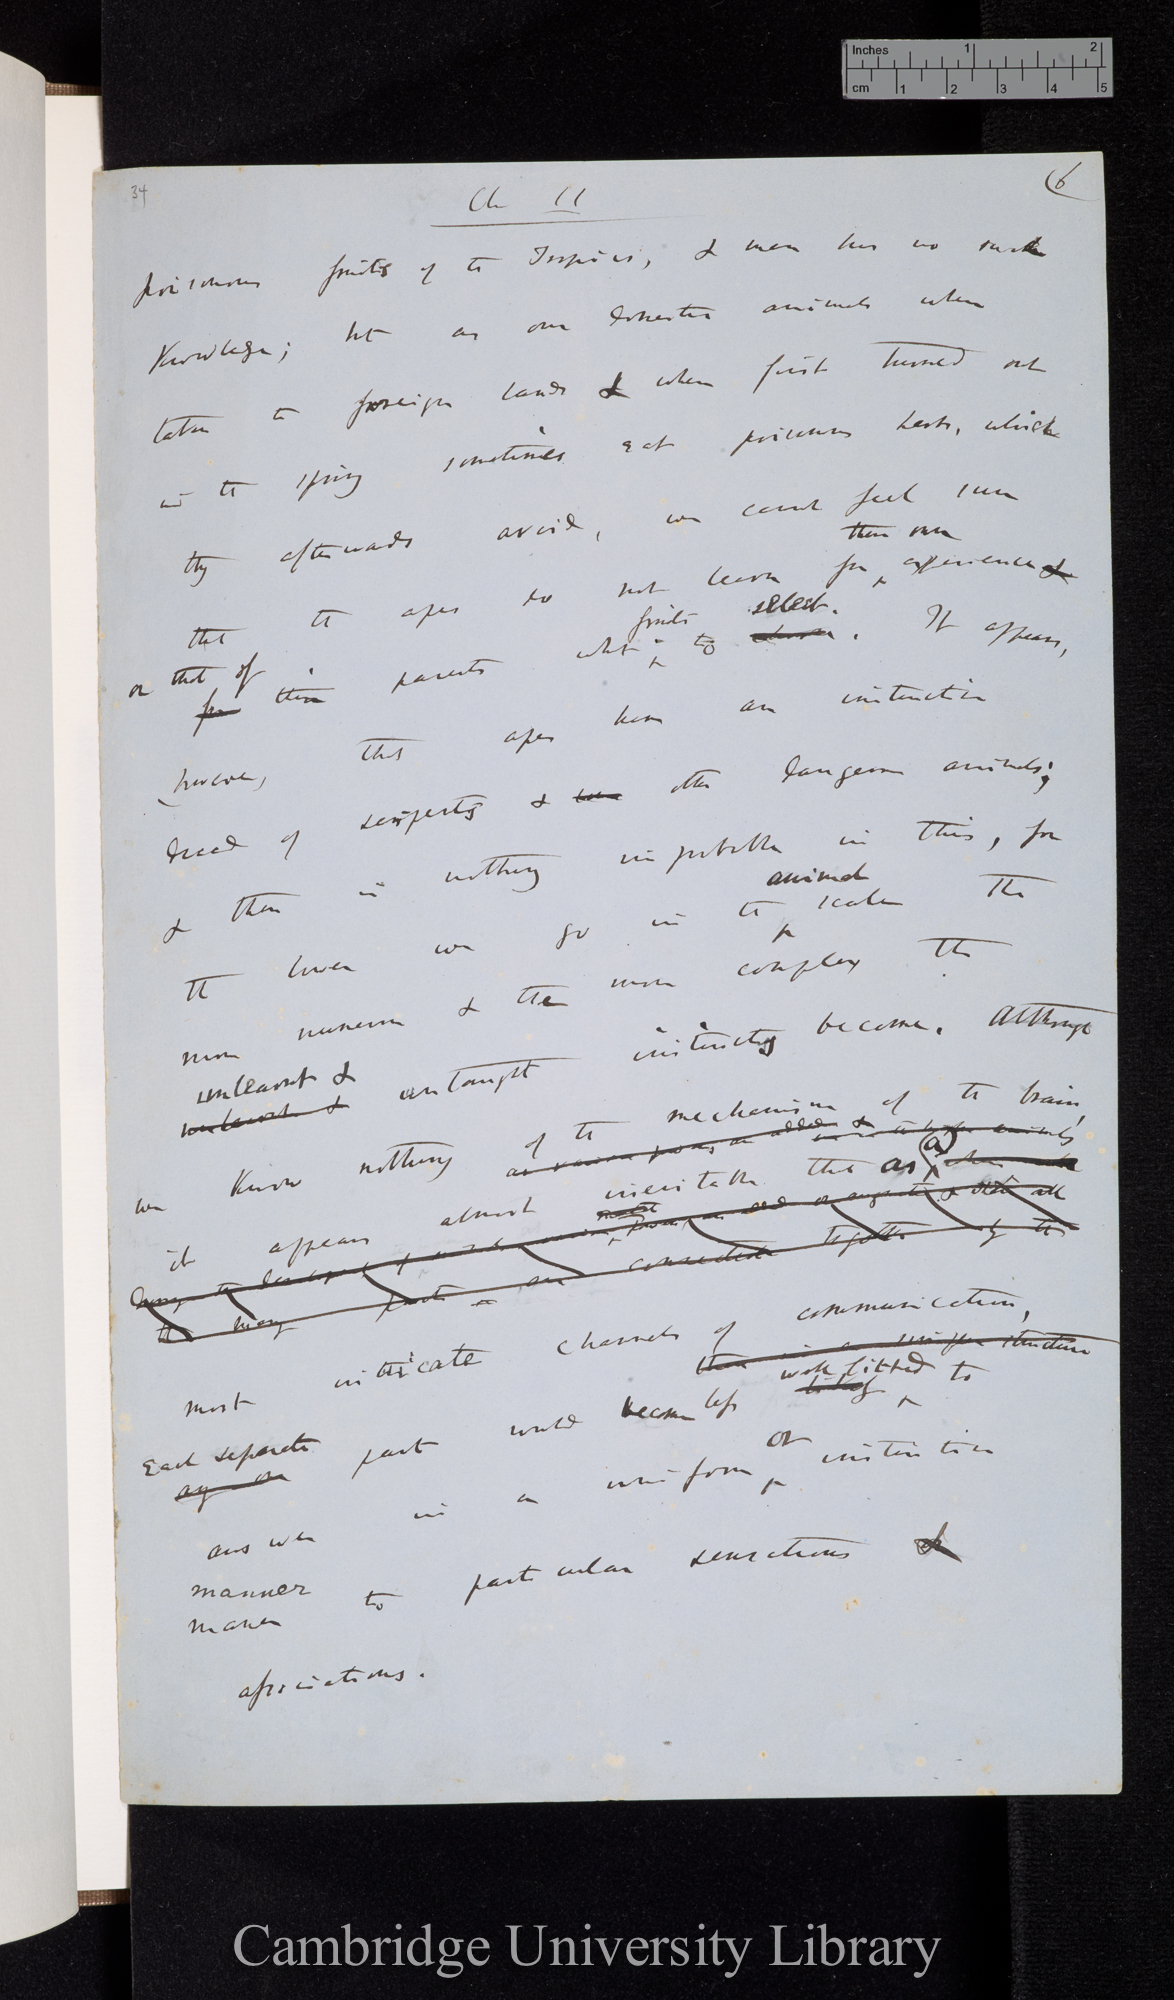 Inches 1 2
cm 1 2 3 4 5
34
Ch II
(6
poisonous fruits of the Tropics, & man has no such
knowledge; but as our domestic animals when
taken to foreign lands & when first turned out
in the spring sometimes eat poisonous herbs, which
they afterwards avoid, we cannot feel sure
their own
that the apes do not learn from experience &
fruits select.
or that of
from their parents what to choose. It appears,
(however, that apes have an instinctive
dread of serpents & other dangerous animals;
& there is nothing improbable in this, for
animal
the lower we go in the scale the
more numerous & the more complex the
unlearnt &
unlearnt & untaught instincts become. Although
we know nothing of the mechanism of the brain,
it appears almost inevitable that as (a)
the many parts are connected together by the
most intricate channels of communication,
there is a simpler structure
well fitted
Each separate
any one part would become less to
or
answer in a uniform instinctive
manner
manner to particular sensations &
associations.
Cambridge University Library